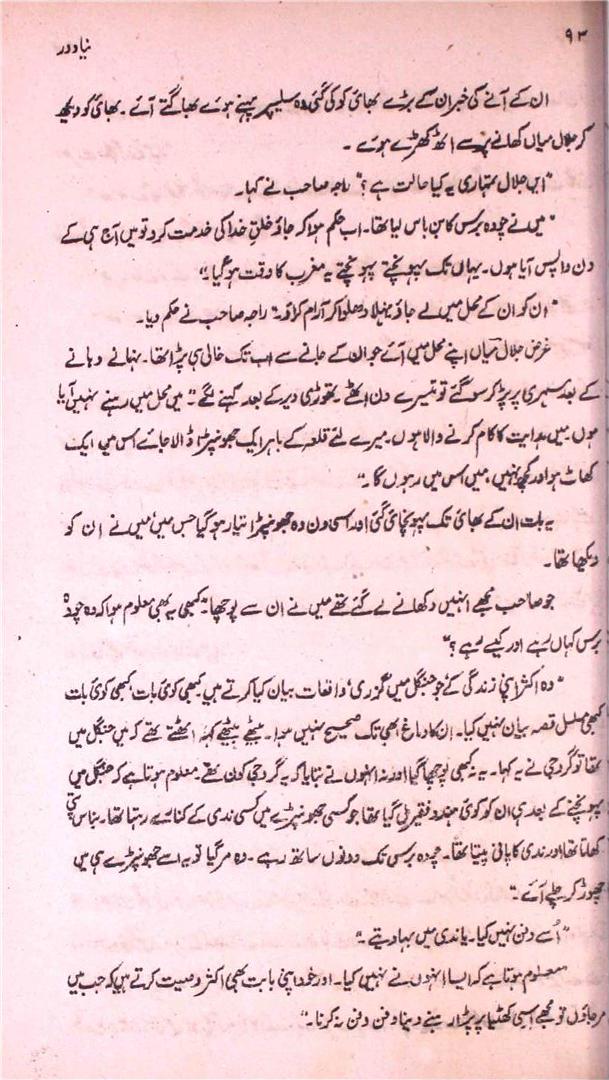 ۹۳
نیا دور
ان کے آنے کی خبر ان کے بڑے بھائی کو کی گئی وہ سلیپر پہنے ہوئے بھاگتے آئے۔ بھائی کو دیکھ
کر جلال میاں کھانے پر سے اٹھ کھڑے ہوئے۔
"ایں جلال تمہاری یہ کیا حالت ہے؟" راجہ صاحب نے کہا۔
"میں نے چودہ برس کا بن باس لیا تھا۔ اب حکم ہوا کہ جاؤ خلقِ خدا کی خدمت کرو تو میں آج ہی کے
دن واپس آیا ہوں۔ یہاں تک پہونچتے پہونچتے یہ مغرب کا وقت ہو گیا۔"
"ان کو ان کے محل میں لے جاؤ نہلا دھلوا کر آرام کراؤ۔" راجہ صاحب نے حکم دیا۔
غرض جلال میاں اپنے محل میں آئے جو ان کے جانے سے اب تک خالی ہی پڑا تھا۔ نہانے دہانے
کے بعد مسہری پر پڑ کر سو گئے تو تیسرے دن اٹھے۔ تھوڑی دیر کے بعد کہنے لگے۔" میں محل میں رہنے نہیں آیا
ہوں۔ میں ہدایت کا کام کرنے والا ہوں۔ میرے لئے قلعہ کے باہر ایک جھونپڑا ڈالا جائے اس میں ایک
کھاٹ ہو اور کچھ نہیں، میں اس میں رہوں گا۔"
یہ بات ان کے بھائی تک پہونچائی گئی اور اسی دن وہ جھونپڑا تیار ہو گیا جس میں میں نے ان کو
دیکھا تھا۔
جو صاحب مجھے انہیں دکھانے لے گئے تھے میں نے ان سے پوچھا "کبھی یہ بھی معلوم ہوا کہ وہ چودہ
برس کہاں رہے اور کیسے رہے؟"
"وہ اکثر اپنی زندگی کے جو جنگل میں گزری، واقعات بیان کیا کرتے ہیں کبھی کوئی بات، کبھی کوئی بات
کبھی مسلسل قصہ بیان نہیں کیا۔ ان کا دماغ ابھی تک صحیح نہیں ہوا۔ بیٹھے بیٹھے کہہ اٹھتے تھے کہ میں جنگل میں
تھا تو گرو جی نے یہ کہا۔ یہ نہ کبھی پوچھا گیا اور نہ انہوں نے بتایا کہ یہ گرو جی کون تھے۔ معلوم ہوتا ہے کہ جنگل میں
پہونچنے کے بعد ہی ان کو کوئی ہندو فقیر مل گیا تھا جو کسی جھونپڑے میں کسی ندی کے کنارے رہتا تھا۔ بناس پتی
کھاتا تھا اور ندی کا پانی پیتا تھا۔ چودہ برس تک دونوں ساتھ رہے۔ وہ مر گیا تو یہ اسے جھونپڑے ہی میں
چھوڑ کر چلے آئے۔"
"اُسے دفن نہیں کیا۔ یا ندی میں بہا دیتے۔"
"معلوم ہوتا ہے کہ ایسا انہوں نے نہیں کیا۔ اور خود اپنی بابت بھی اکثر وصیت کرتے ہیں کہ جب میں
مر جاؤں تو مجھے اسی کھٹیا پر پڑا رہنے دینا دفن وفن نہ کرنا۔"